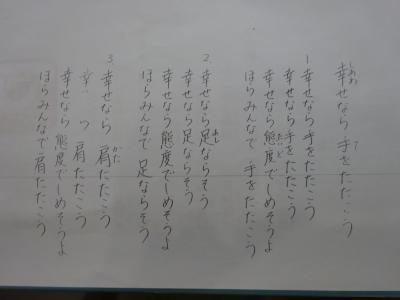 幸せなら 手をたたこう
1 幸せなら手をたたこう
幸せなら手をたたこう
幸せなら態度でしめそうよ
ほらみんなで 手をたたこう
2. 幸せなら足ならそう
幸せなら足ならそう
幸せなら態度でしめそうよ
ほらみんなで 足ならそう
3. 幸せなら 肩たたこう
幸 〃 肩たたこう
幸せなら 態度でしめそうよ
ほらみんなで 肩たたこう